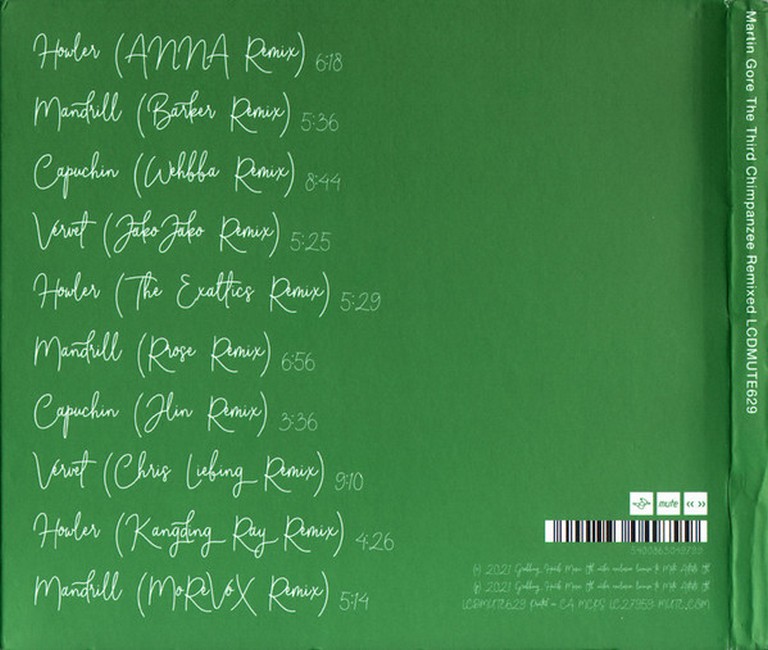 Howler (ANNA Remix) 6:18
Mandrill (Barker Remix) 5:36
Capuchin (Wehbba Remix) 8:44
Vervet (JakoJako Remix) 5:25
Howler (The Exaltics Remix) 5:29
Mandrill (Rrose Remix) 6:56
Capuchin (Jlin Remix) 3:36
Vervet (Chris Liebing Remix) 9:10
Howler (Kangding Ray Remix) 4:26
Mandrill (MoReVoX Remix) 5:14
mute
(P) 2021
2021
LCDMUTE629 MCPS LC27959 MUTE.COM
Martin Gore The Third Chimpanzee Remixed LCDMUTE629